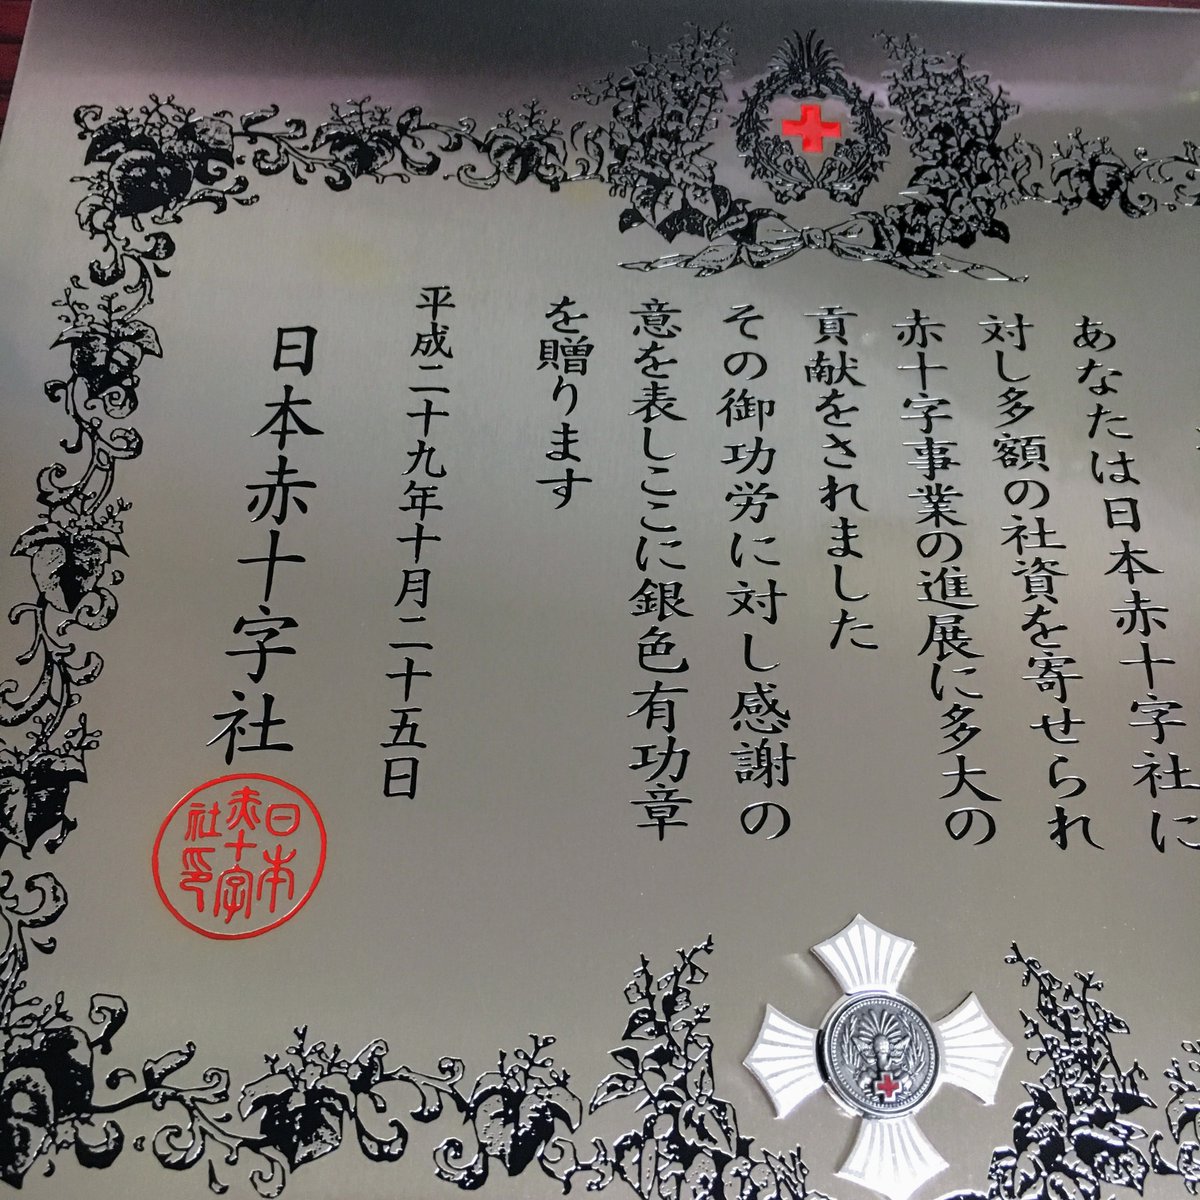 あなたは日本赤十字社に
対し多額の社資を寄せられ
赤十字事業の進展に多大の
貢献をされました
その御功労に対し感謝の
意を表しここに銀色有功章
を贈ります
平成二十九年十月二十五日
日本赤十字社
日本
赤十字
社印